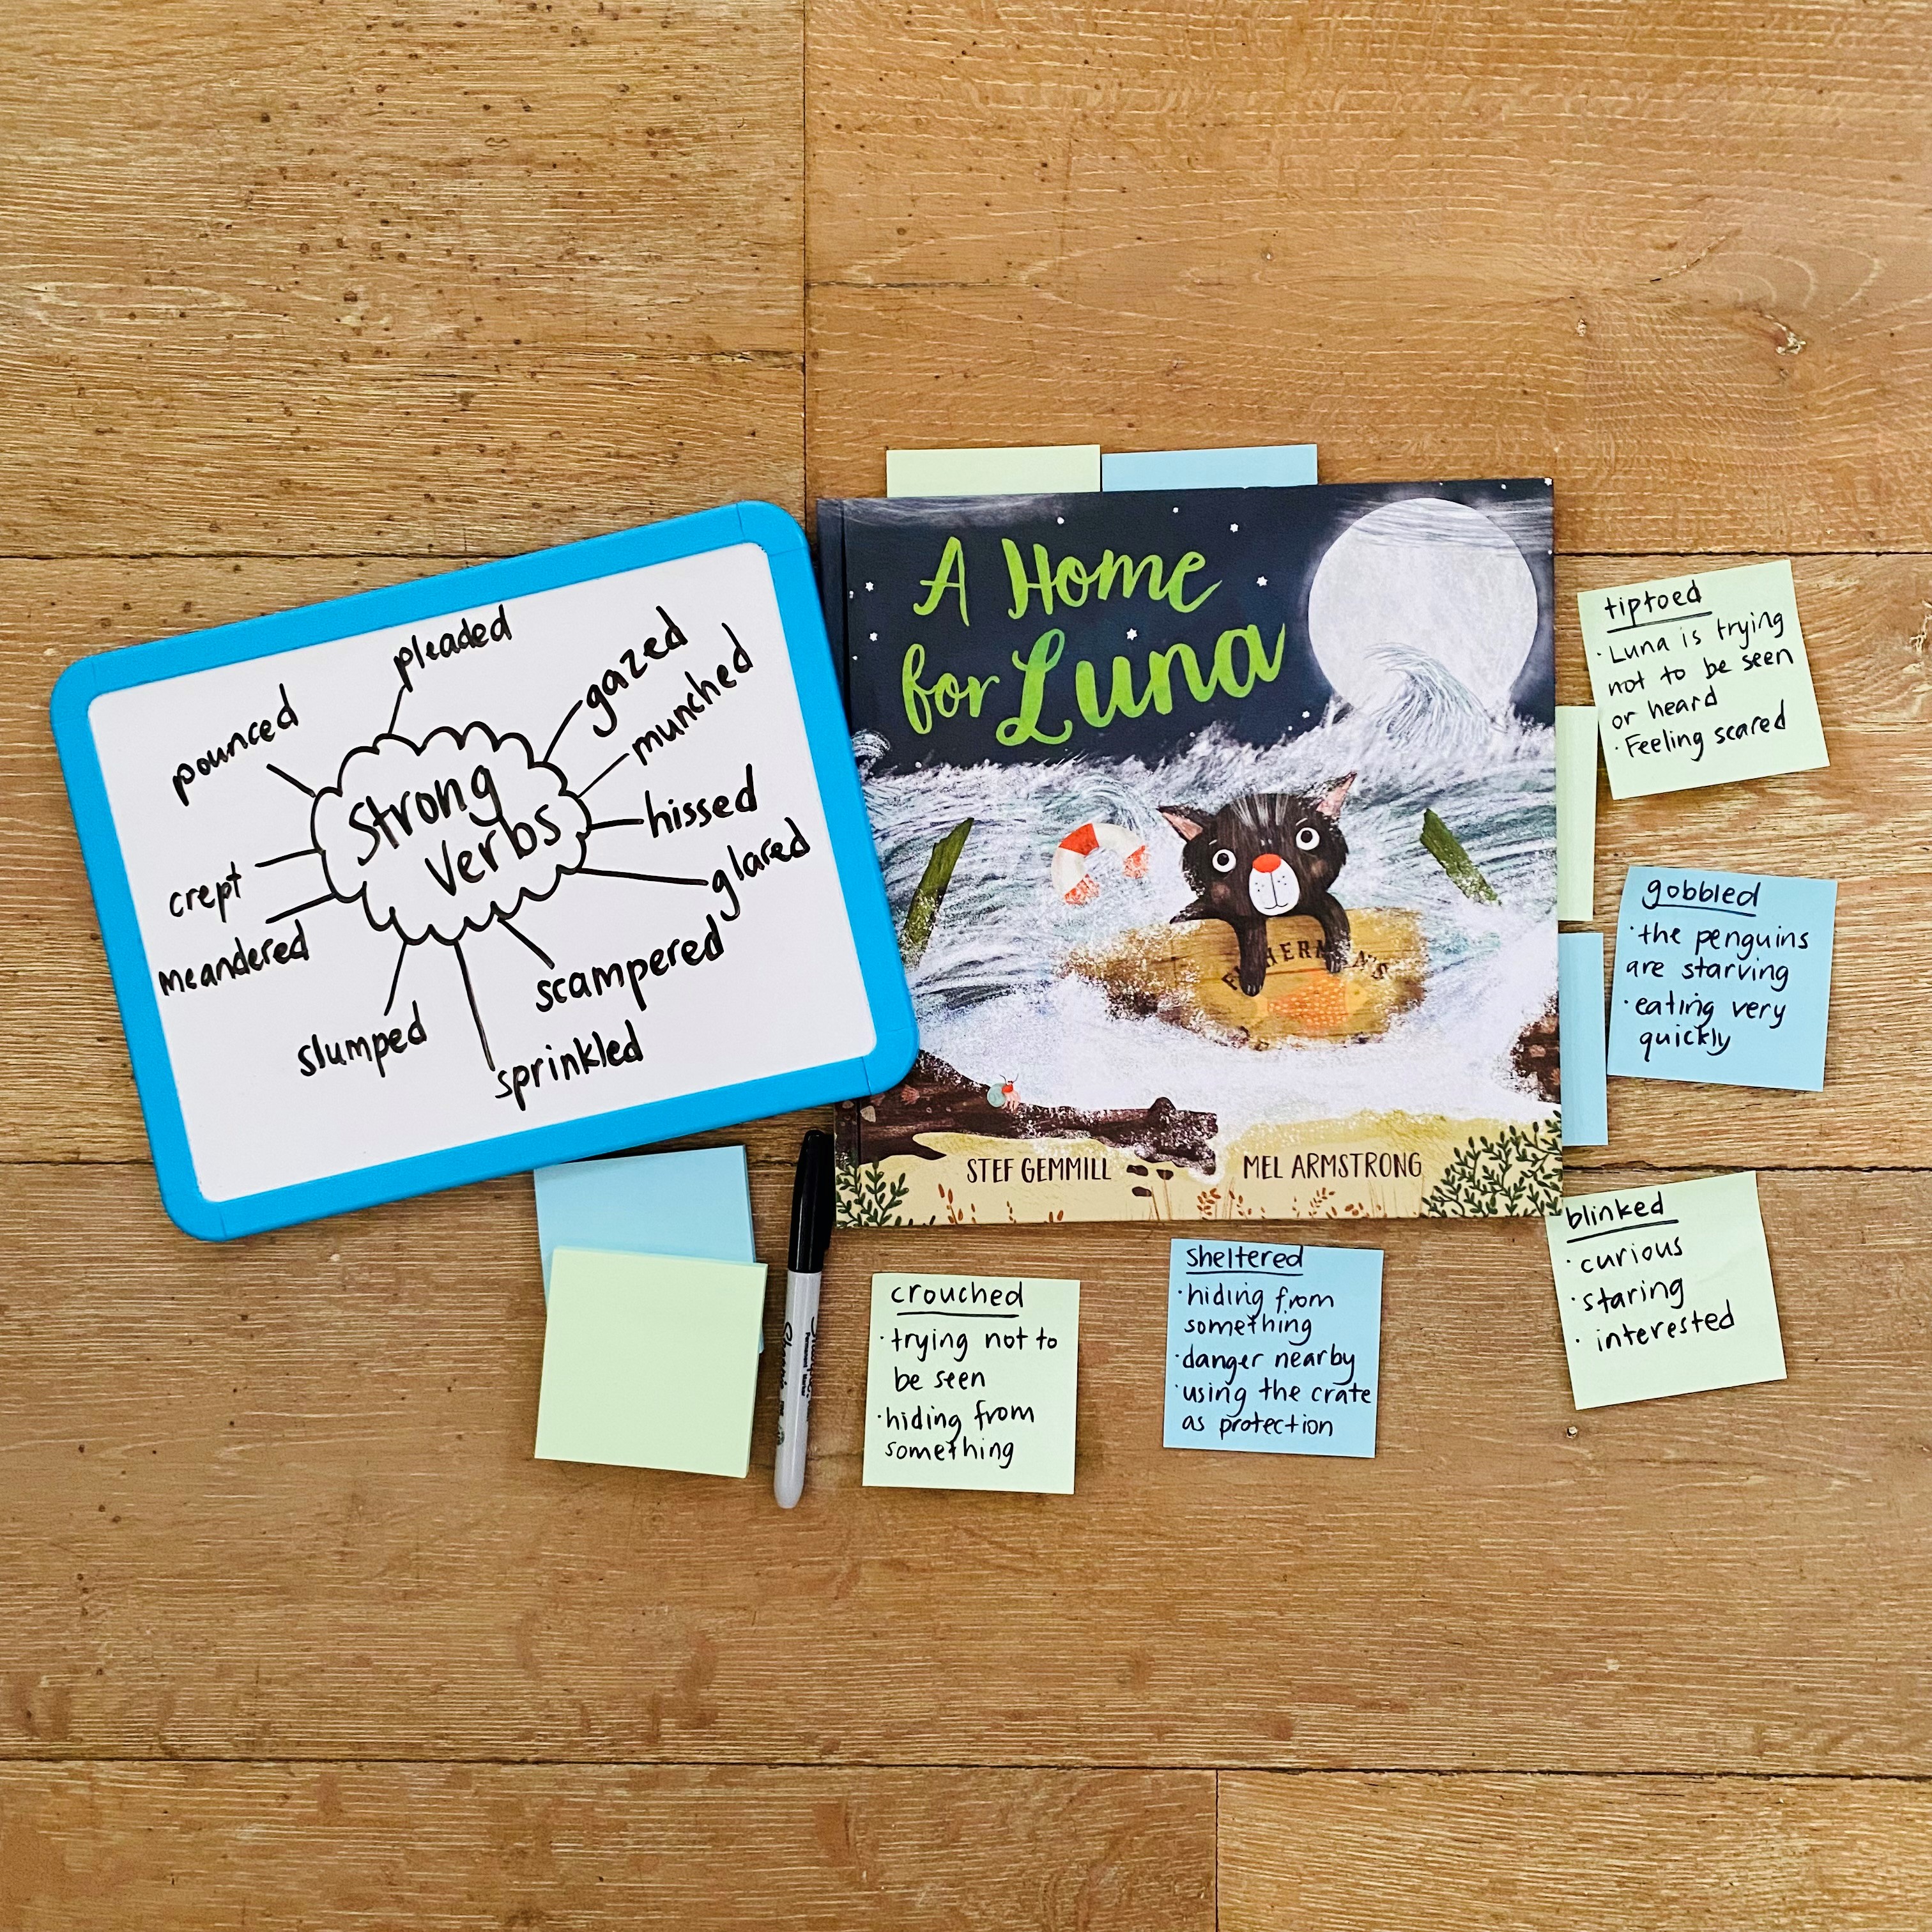 pleaded
gazed
munched
hissed
glared
scampered
sprinkled
slumped
meandered
crept
pounced
Strong
Verbs
A Home
for Luna
STEF GEMMILL
MEL ARMSTRONG
tiptoed
· Luna is trying
not to be seen
or heard
· Feeling scared
gobbled
· the penguins
are starving
· eating very
quickly
blinked
· curious
· staring
· interested
sheltered
· hiding from
something
· danger nearby
· using the crate
as protection
crouched
· trying not to
be seen
· hiding from
something
Sharpie